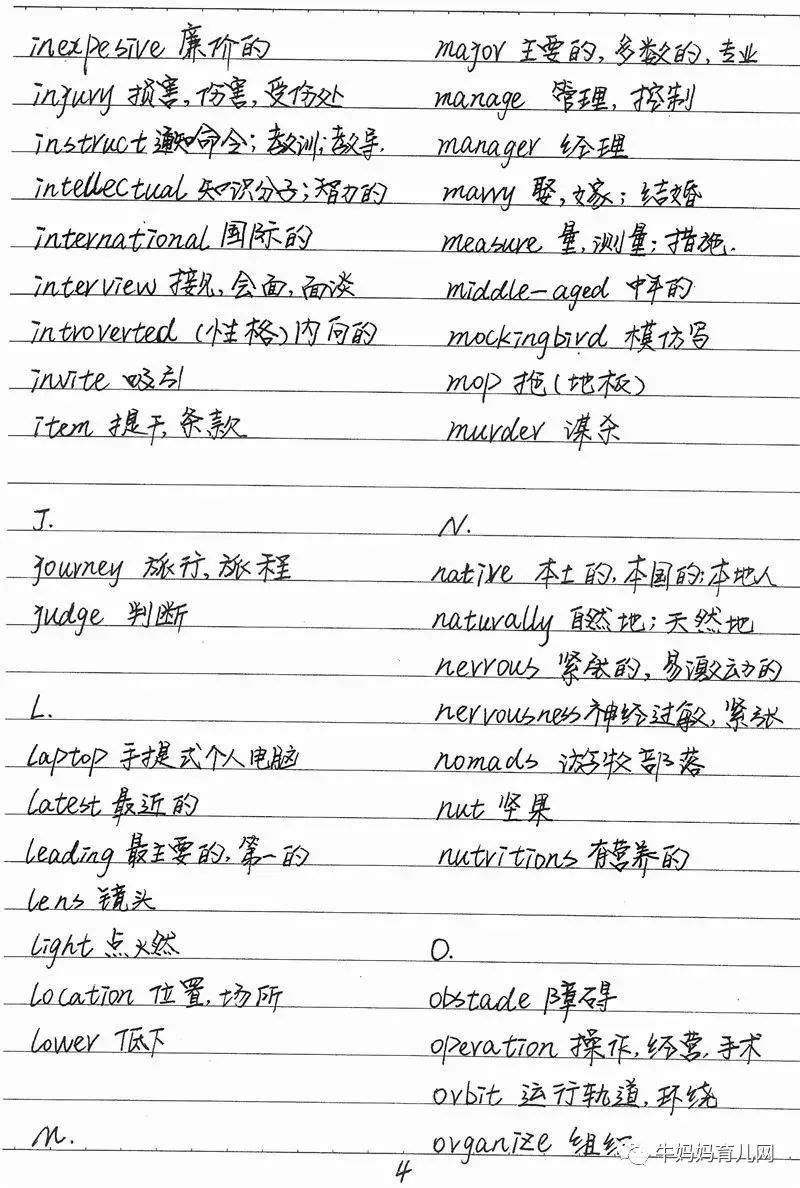 inexpesive 廉价的
injury 损害,伤害,受伤处
instruct 通知命令;教训;教导.
intellectual 知识分子;智力的
international 国际的
interview 接见,会面,面谈
introverted (性格)内向的
invite 吸引
item 提干,条款
J.
journey 旅行,旅程
judge 判断
L.
laptop 手提式个人电脑
latest 最近的
leading 最主要的,第一的
lens 镜头
light 点火然
location 位置,场所
lower 低下
M.
major 主要的,多数的,专业
manage 管理,控制
manager 经理
marry 娶,嫁;结婚
measure 量,测量;措施.
middle-aged 中年的
mockingbird 模仿写
mop 拖(地板)
murder 谋杀
N.
native 本土的,本国的;本地人
naturally 自然地;天然地
nervous 紧张的,易激动的
nervousness 神经过敏,紧张
nomads 游牧部落
nut 坚果
nutritions 有营养的
O.
obstacle 障碍
operation 操作,经营,手术
orbit 运行轨道,环绕
organize 组织
4
牛妈妈育儿网